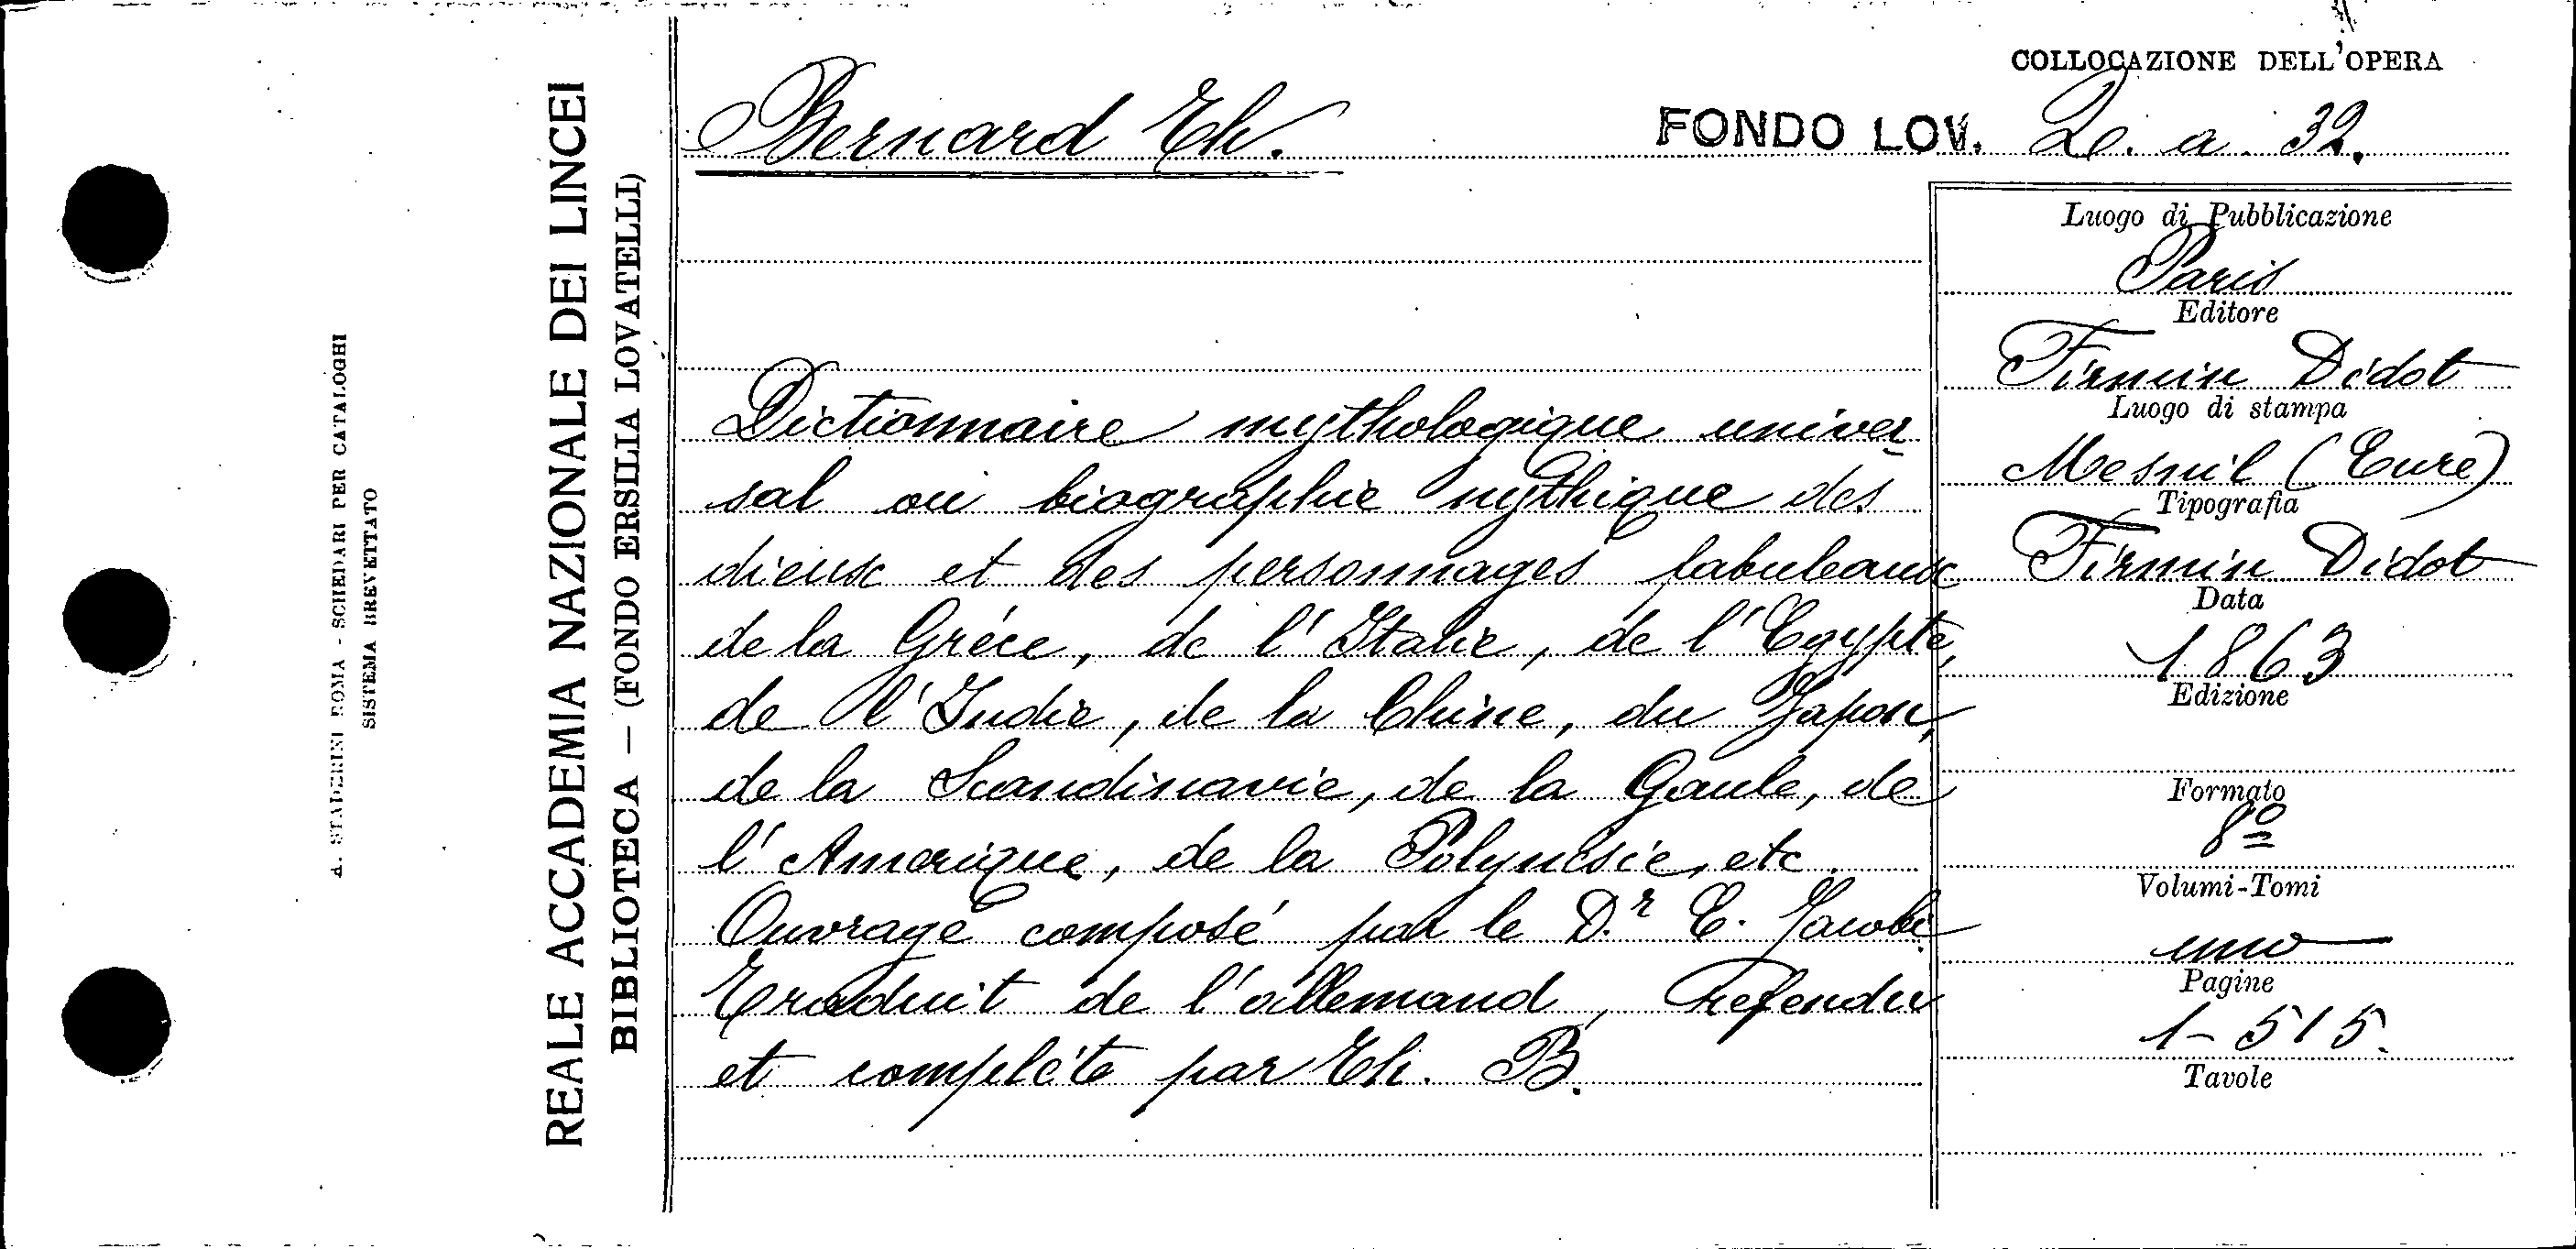 A. STADERINI ROMA - SCHEDARI PER CATALOGHI
SISTEMA BREVETTATO
REALE ACCADEMIA NAZIONALE DEI LINCEI
BIBLIOTECA — (FONDO ERSILIA LOVATELLI)
COLLOCAZIONE DELL'OPERA
Bernard Th.
FONDO LOV. 2. a. 32.
Dictionnaire mythologique univer
sal ou biographie mythique des
dieux et des personnages fabuleaux
de la Gréce, de l'Italie, de l'Egypte,
de l'Indie, de la Chine, du Japon,
de la Scandinavie, de la Gaule, de
l'Amerique, de la Polynesie, etc.
Ouvrage composé par le D.r E. Jacobi
Traduit de l'allemand, Refendu
et complété par Th. B.
Luogo di Pubblicazione
Paris
Editore
Firmin Didot
Luogo di stampa
Mesnil (Eure)
Tipografia
Firmin Didot
Data
1863
Edizione
Formato
8º
Volumi-Tomi
uno
Pagine
1-515.
Tavole